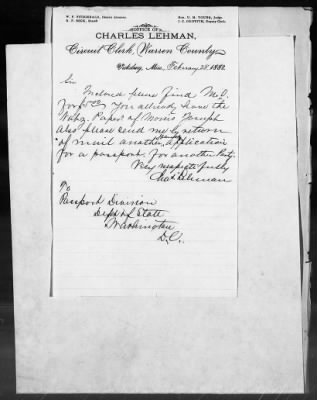 W. F. FITZGERALD, District Attorney.
R. F. BECK, Sheriff.
Hon. U. M. YOUNG, Judge.
J. C. GRIFFITH, Deputy Clerk.
OFFICE OF
CHARLES LEHMAN,
Circuit Clerk, Warren County,
Vicksburg, Miss., February 28, 1882
Sir
Inclosed please find M.O.
for You already have the
Papers of Morris Joseph
also please send me by return
of mail another application
for a passport for another Party.
Very respectfully
Chas Lehman
To
Passport Division
Dept of State
Washington
D.C.